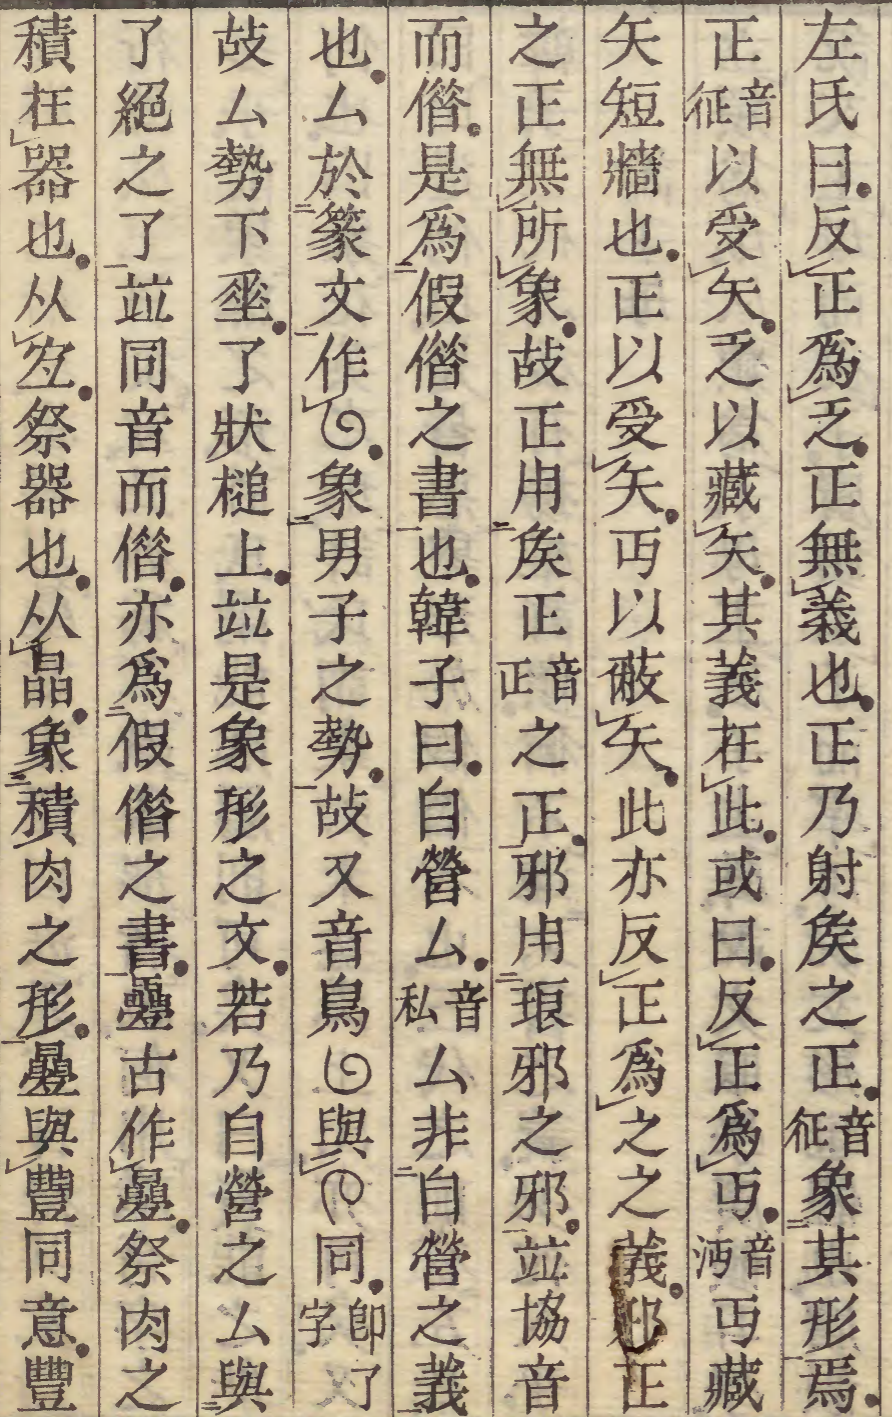 左氏曰反正爲乏正無義也正乃射矦之正音征象其形焉
正音征以受矢乏以藏矢其義在此或曰反正爲丏音沔丏藏
矢短牆也正以受矢丏以蔽矢此亦反正爲之之義邪正
之正無所象故正用矦正音正之正邪用琅邪之邪竝協音
而借是爲假借之書也韓子曰自營厶音私厶非自營之義
也厶於篆文作象男子之勢故又音鳥與同即了字
故厶勢下垂了狀槌上竝是象形之文若乃自營之厶與
了絕之了竝同音而借亦爲假借之書疊古作曡祭肉之
積在器也从宜祭器也从晶象積肉之形曡與豐同意豐